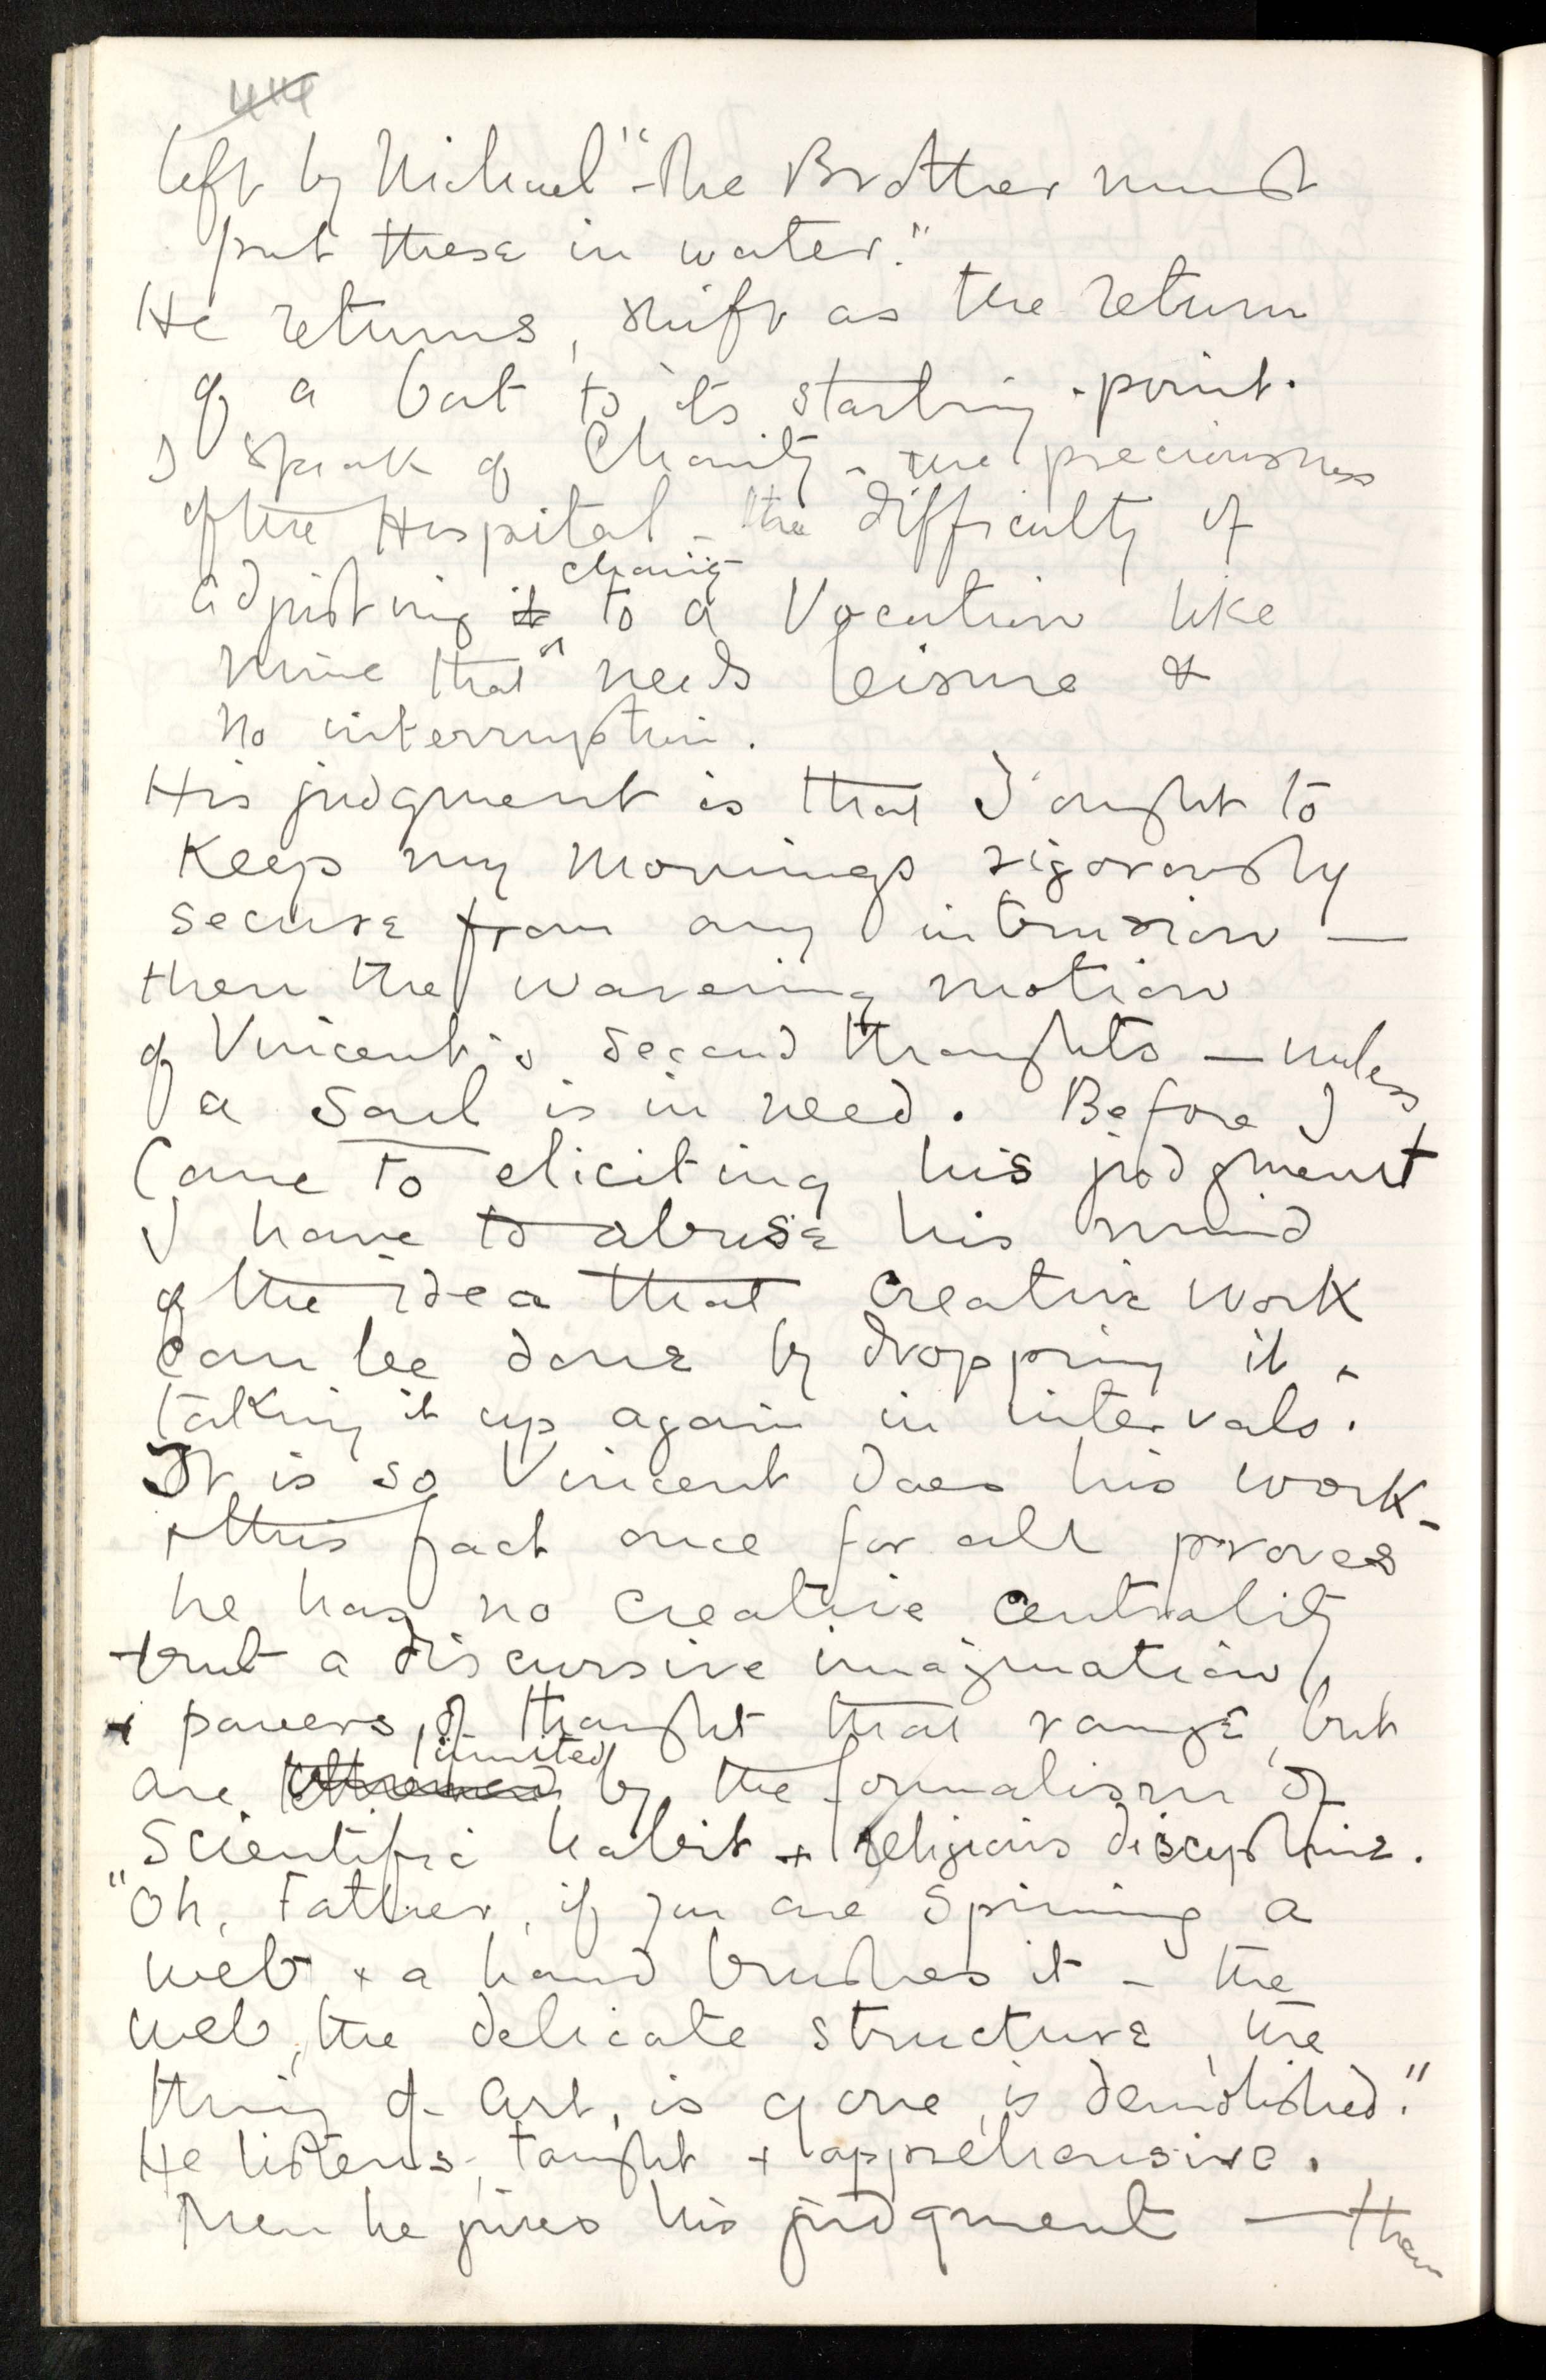 left by Michael "The Brother must
put these in water."
He returns, swift as the return
of a bat to its starting-point.
I speak of Charity - the preciousness
of the Hospital - the difficulty of
adjusting it charity to a Vocation like
mine that needs leisure &
no interruption.
His judgment is that I ought to
keep my mornings rigorously
secure from any intrusion —
then the wavering motion
of Vincent's second thoughts — unless
a Soul is in need. Before I
came to eliciting his judgment
I have to abuse his mind
of the idea that creative work
can be done by dropping it &
taking it up again in intervals.
It is so Vincent does his work -
& this fact once for all proves
he has no creative centrality
but a discursive imagination,
& powers of thought that range, but
are limited by the formalism of
Scientific habit & religious discipline.
"Oh, Father, if you are spinning a
web & a hand brushes it - the
web, the delicate structure, the
thing of art, is gone, is demolished."
He listens, taught & apprehensive.
Then he gives his judgment — then